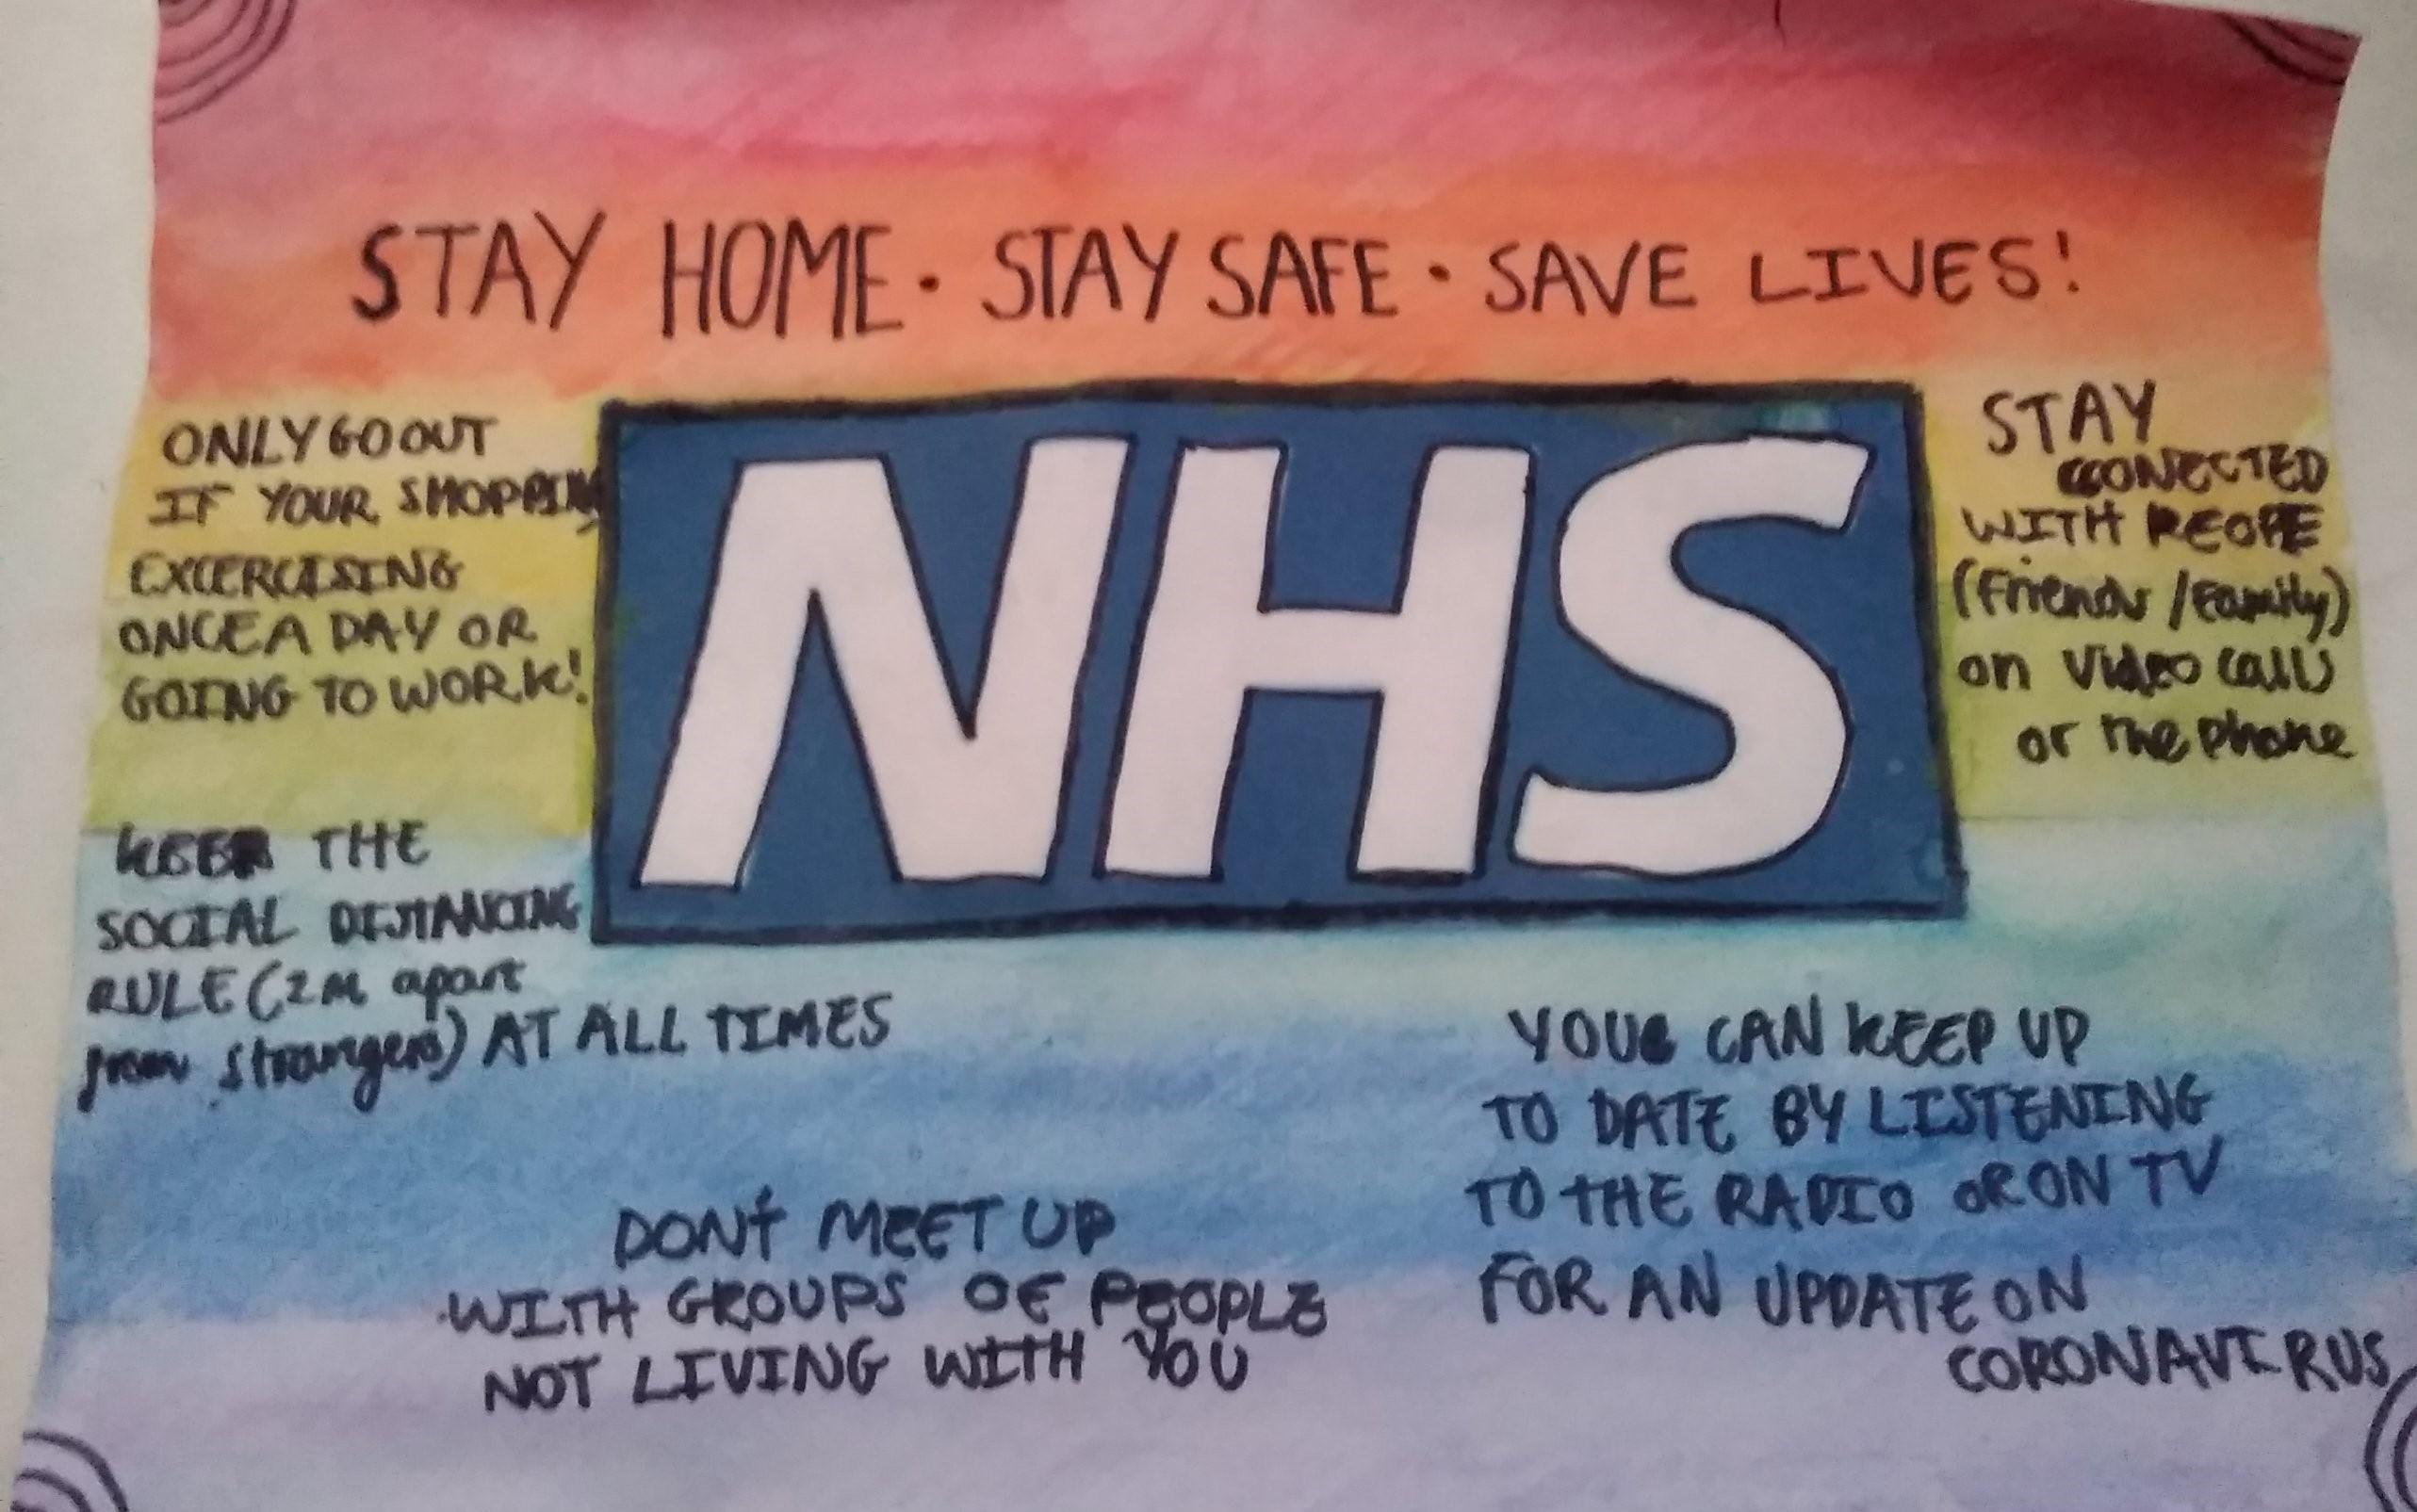 STAY HOME · STAY SAFE · SAVE LIVES!
ONLY GO OUT
IF YOUR SHOPPING
EXCERCISING
ONCE A DAY OR
GOING TO WORK!
NHS
STAY
CONECTED
WITH PEOPE
(Friends / Family)
on video calls
or the phone
KEEP THE
SOCIAL DISTANCING
RULE (2M apart
from strangers) AT ALL TIMES
DON't MEET UP
WITH GROUPS OF PEOPLE
NOT LIVING WITH YOU
YOU CAN KEEP UP
TO DATE BY LISTENING
TO THE RADIO OR ON TV
FOR AN UPDATE ON
CORONAVIRUS